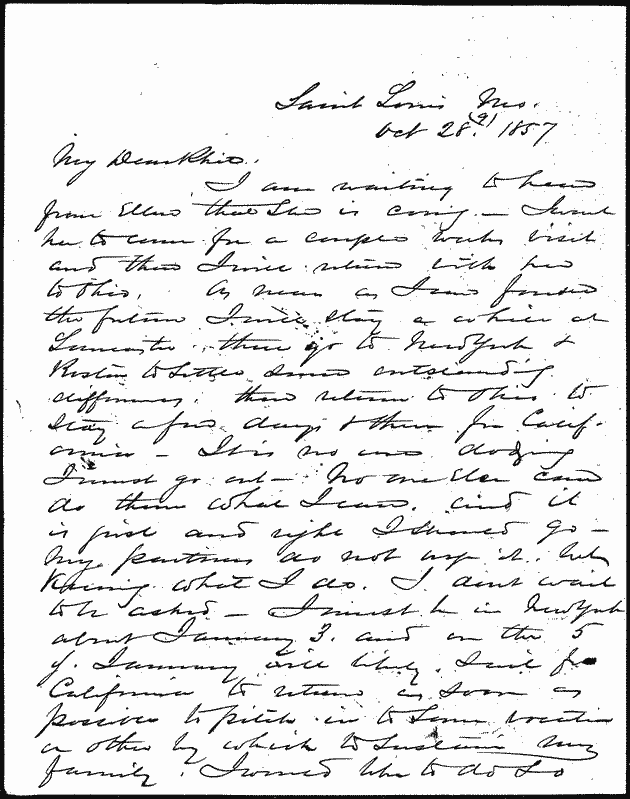 Saint Louis Mo.
Oct 28. 1857
My Dear Phil.
I am waiting to hear
from Ellen that she is coming – I want
her to come for a couple weeks visit
and then I will return with her
to Ohio. As near as I can foresee
the future I will stay a while at
Lancaster. then go to New York &
Boston to settle some outstanding
differences. then return to Ohio to
stay a few days & then for Calif-
ornia – It is no use dodging
I must go out – No one else can
do there what I can. and it
is just and right I should go –
My partners do not urge it. but
Knowing what I do. I dont wait
to be asked – I must be in New York
about January 3. and on the 5
of January will likely sail for
California to return as soon as
possible to pitch in to some vocation
or other by which to sustain my
family. I would like to do so